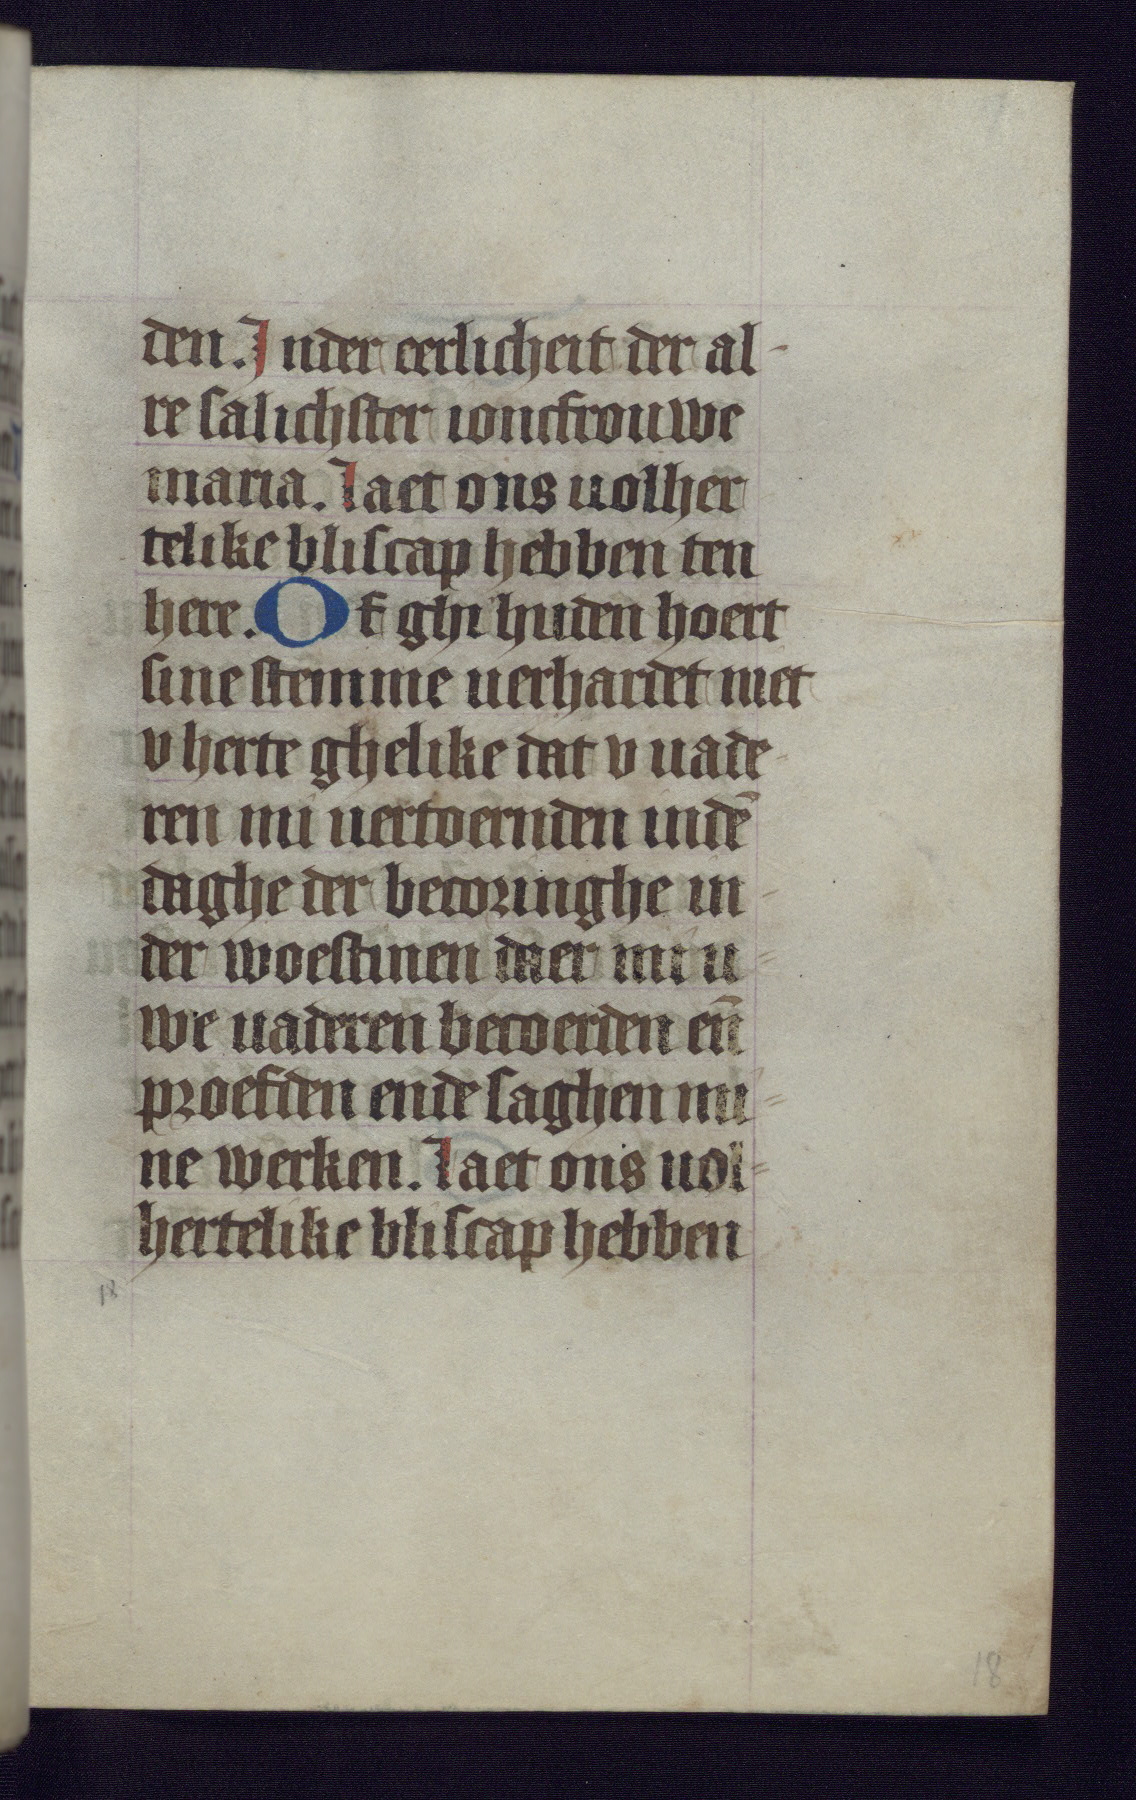 den. Inder eerlicheit der al-
re salichster ioncfrouwe
maria. Laet ons uolher
telike bliscap hebben ten
here. Of ghi huden hoert
sine stemme uerhardet niet
v herte ghelike dat v uade-
ren mi uertoernden indē
daghe der becoringhe in-
der woestinen daer mi u=
we uaderen becoerden eñ
proefden ende saghen mi=
ne werken. Laet ons uol=
hertelike bliscap hebben
18
18